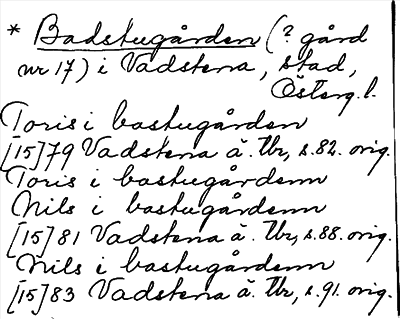 * Badstugården (? gård
nr 17) i Vadstena, stad,
Österg. l.
Toris i bastugården
[15]79 Vadstena ä. Tb, s. 82. orig.
Toris i bastugårdenn
Nils i bastugården
[15]81 Vadstena ä. Tb, s. 88. orig.
Nils i bastugårdenn
[15]83 Vadstena ä. Tb, s. 91. orig.